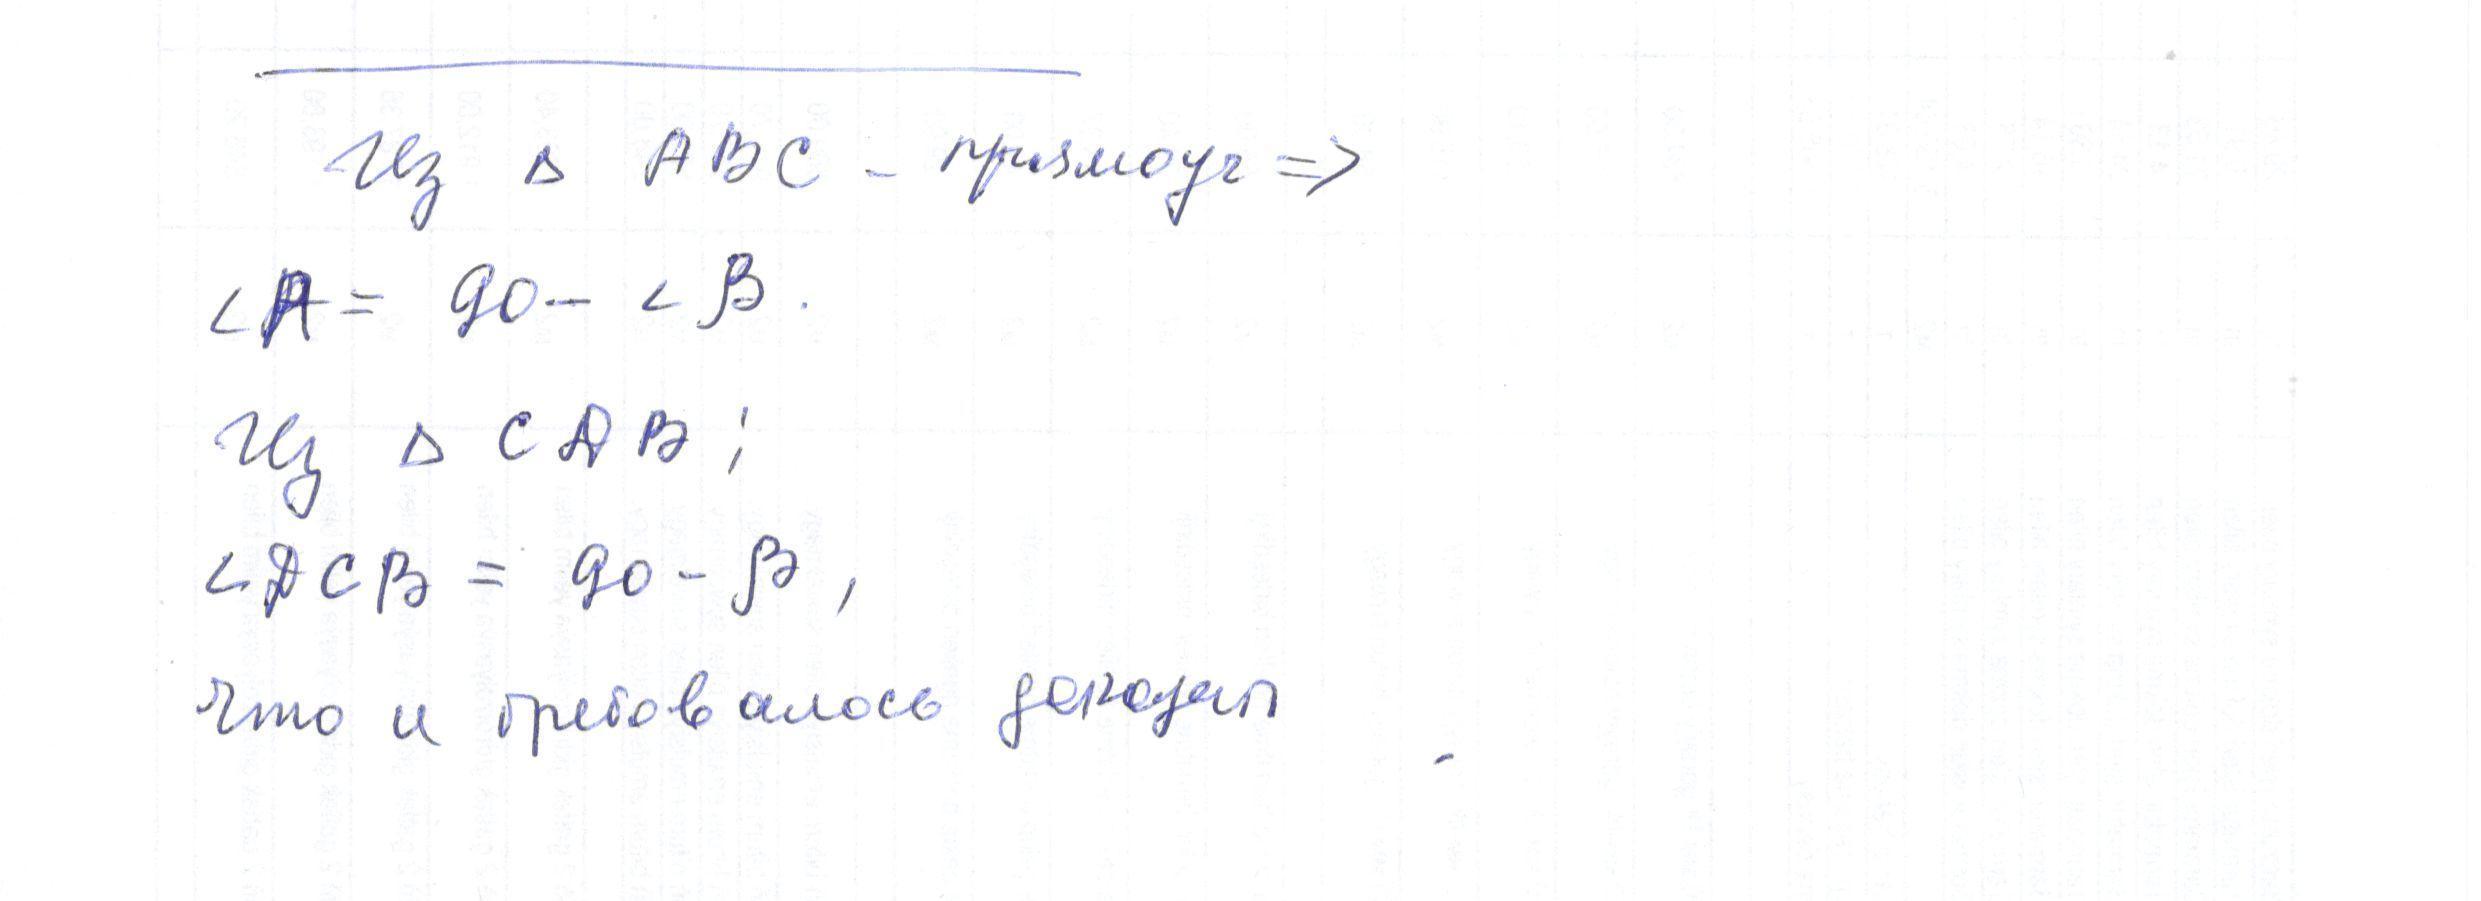 Из Δ ABC - прямоуг =>
∠A = 90 - ∠B.
Из Δ CDB;
∠DCB = 90 - B,
что и требовалось доказат